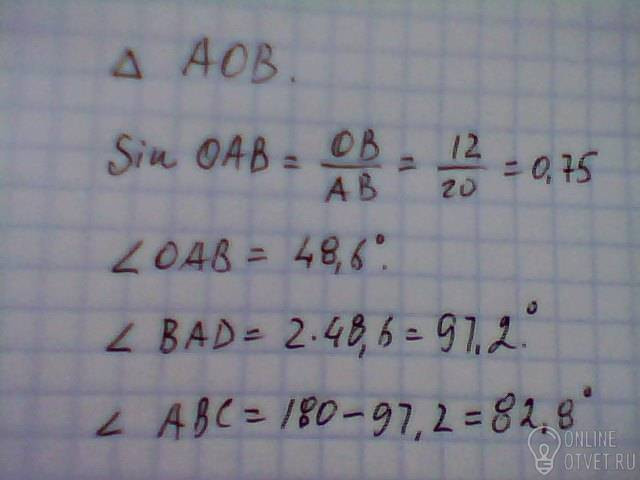 Δ AOB.
Sin OAB = OB/AB = 12/20 = 0,75
∠OAB = 48,6°.
∠ BAD = 2·48,6 = 97,2.°
∠ ABC = 180 - 97,2 = 82,8°
ONLINE
OTVET.RU